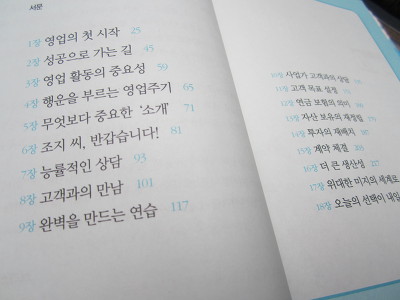 서문
1장 영업의 첫 시작 25
2장 성공으로 가는 길 45
3장 영업 활동의 중요성 59
4장 행운을 부르는 영업주기 65
5장 무엇보다 중요한 '소개' 71
6장 조지 씨, 반갑습니다! 81
7장 능률적인 상담 93
8장 고객과의 만남 101
9장 완벽을 만드는 연습 117
10장 사업가 고객과의 상담
11장 고객 목표 설정
12장 연금 보험의 의미
13장 자산 보유의 재정립
14장 투자의 재배치
15장 계약 체결
16장 더 큰 생산성
17장 위대한 미지의 세계로
18장 오늘의 선택이 내일